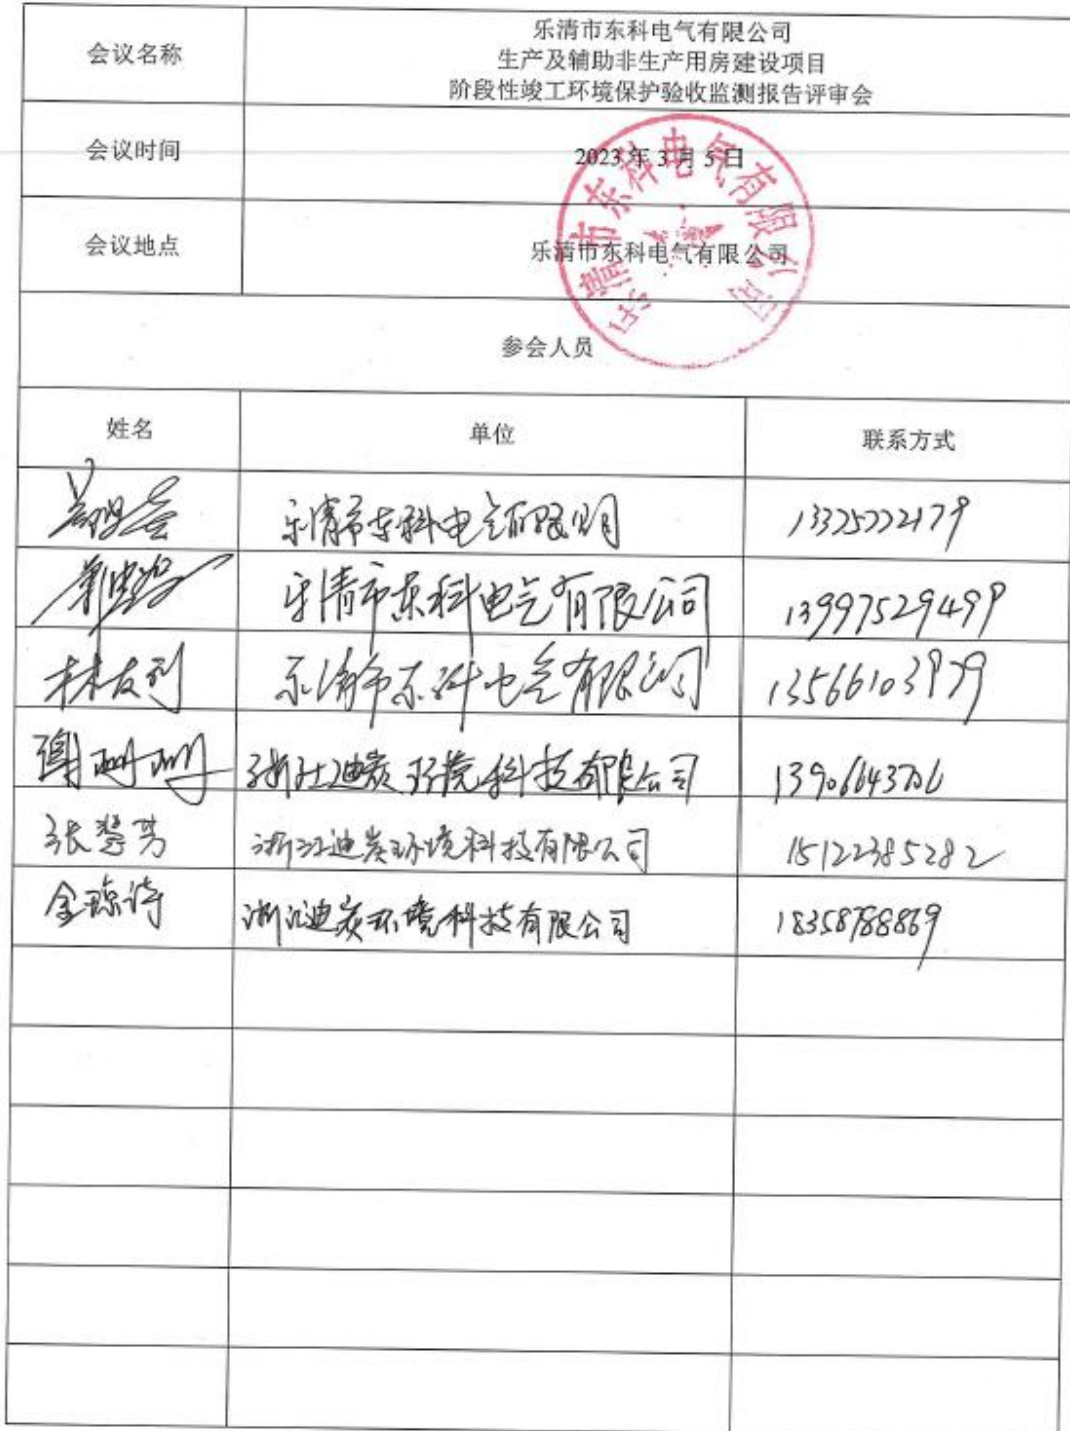 会议名称
乐清市东科电气有限公司
生产及辅助非生产用房建设项目
阶段性竣工环境保护验收监测报告评审会
会议时间
2023年3月5日
会议地点
乐清市东科电气有限公司
乐清市东科电气有限公司
参会人员
姓名 单位 联系方式
乐清市东科电气有限公司 13325222179
乐清市东科电气有限公司 13997529499
林友列 乐清市东科电气有限公司 13566103979
谢珊珊 浙江迪炭环境科技有限公司 13906643706
张 芳 浙江迪炭环境科技有限公司 15122385282
金琼诗 浙江迪炭环境科技有限公司 18358788869